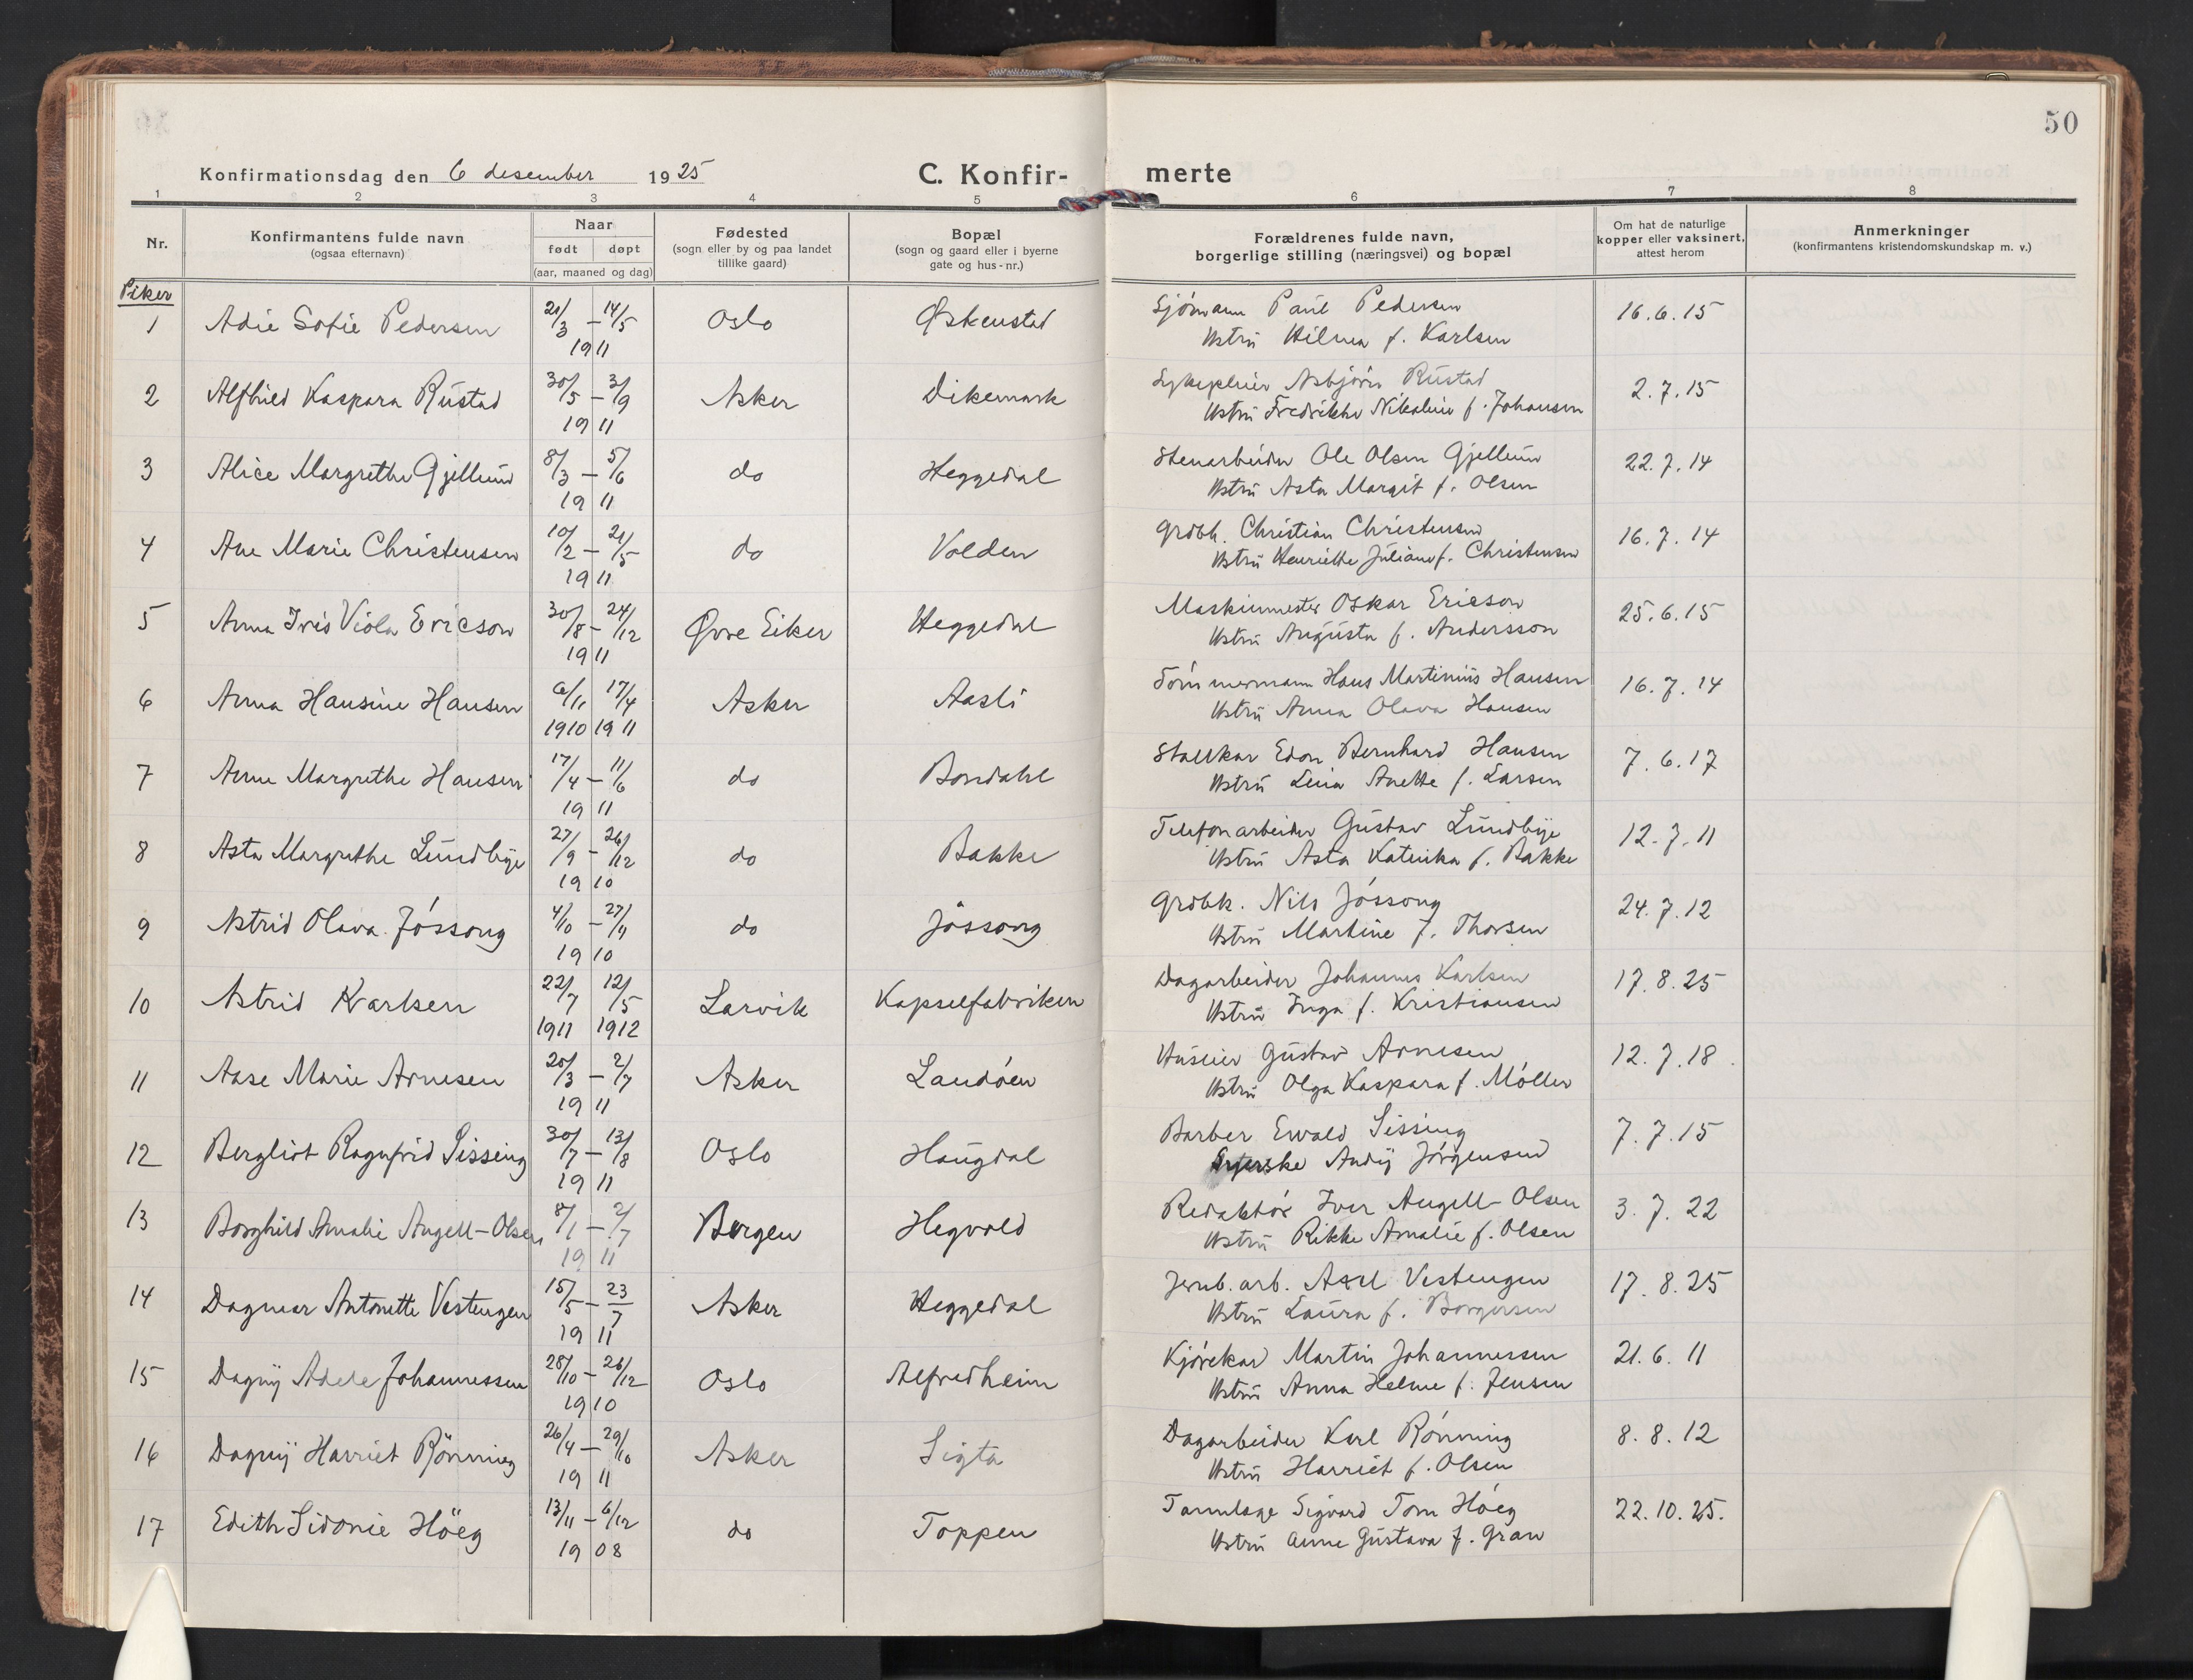 50
Konfirmationsdag den 6 desember 1925
C. Konfir-
merte
1 2 3 4 5 6 7 8
Nr.
Konfirmantens fulde navn
(ogsaa efternavn)
Naar
født døpt
(aar, maaned og dag)
Fødested
(sogn eller by og paa landet
tillike gaard)
Bopæl
(sogn og gaard eller i byerne
gate og hus-nr.)
Forældrenes fulde navn,
borgerlige stilling (næringsvei) og bopæl
Om hat de naturlige
kopper eller vaksinert,
attest herom
Anmerkninger
(konfirmantens kristendomskundskap m. v.)
Piker
1 Adie Sofie Pedersen 21/3 – 14/5 Oslo Øskenstad Sjómann Paul Pedersen 16.6.15
1911 Hstrú Hilma f. Karlsen
2 Alfhild Kaspara Rústad 30/5 – 3/9 Asker Dikemark Sykepleier Asbjórn Rústad 2.7.15
1911 Hstrú Fredrikke Nikoline f. Johansen
3 Alice Margrethe Gjellum 8/3 – 5/6 do Heggedal Stenarbeider Ole Olsen Gjellum 22.7.14
1911 Hstrú Asta Margit f. Olsen
4 Ane Marie Christensen 10/2 – 21/5 do Volden Grdbk. Christian Christensen 16.7.14
1911 Hstrú Henriette Júliane f. Christensen
5 Anna Iris Viola Ericson 30/8 – 24/12 Øvre Eiker Heggedal Maskinmester Oskar Ericson 25.6.15
1911 Hstrú Augústa f. Andersson
6 Anna Hansine Hansen 6/11 17/4 Asker Aasli Tómmermann Hans Martiniús Hansen 16.7.14
1910 1911 Hstrú Anna Olava Hansen
7 Anne Margrethe Hansen 17/4 – 11/6 do Bondahl Stallkar Edon Bernhard Hansen 7.6.17
1911 Hstrú Lina Anette f. Larsen
8 Asta Margrethe Lúndbye 27/9 – 26/12 do Bakke Telefonarbeider Gústav Lúndbye 12.7.11
1910 Hstrú Asta Katinka f. Bakke
9 Astrid Olava Jóssong 4/10 – 27/11 do Jóssong Grdbk. Nils Jóssong 24.7.12
1910 Hstrú Martine f. Thorsen
10 Astrid Karlsen 22/7 12/5 Larvik Kapselfabriken Dagarbeider Johannes Karlsen 17.8.25
1911 1912 Hstrú Inga f. Kristiansen
11 Aase Marie Arnesen 20/3 – 2/7 Asker Landóen Húseier Gústav Arnesen 12.7.18
1911 Hstrú Olga Kaspara f. Móller
12 Bergliot Ragnfrid Sissing 30/7 – 13/8 Oslo Haúgdal Barber Ewald Sissing 7.7.15
1911 Syerske Andÿ Jórgensen
13 Borghild Amalie Angell-Olsen 8/1 – 2/7 Bergen Hegvold Redaktór Iver Angell-Olsen 3.7.22
1911 Hstrú Rikke Amalie f. Olsen
14 Dagmar Antonette Vestengen 15/5 – 23/7 Asker Heggedal Jernb. arb. Axel Vestengen 17.8.25
1911 Hstrú Laúra f. Borgersen
15 Dagnÿ Adele Johannessen 28/10 – 26/12 Oslo Alfredheim Kjórekar Martin Johannessen 21.6.11
1910 Hstrú Anna Helene f. Jensen
16 Dagnÿ Harriet Rönning 26/4 – 29/10 Asker Sigta Dagarbeider Karl Rónning 8.8.12
1911 Hstrú Harriet f. Olsen
17 Edith Sidonie Höeg 13/11 – 6/12 do Toppen Tannlæge Sigvard Tom Hóeg 22.10.25.
1908 Hstrú Anne Gústava f. Gran